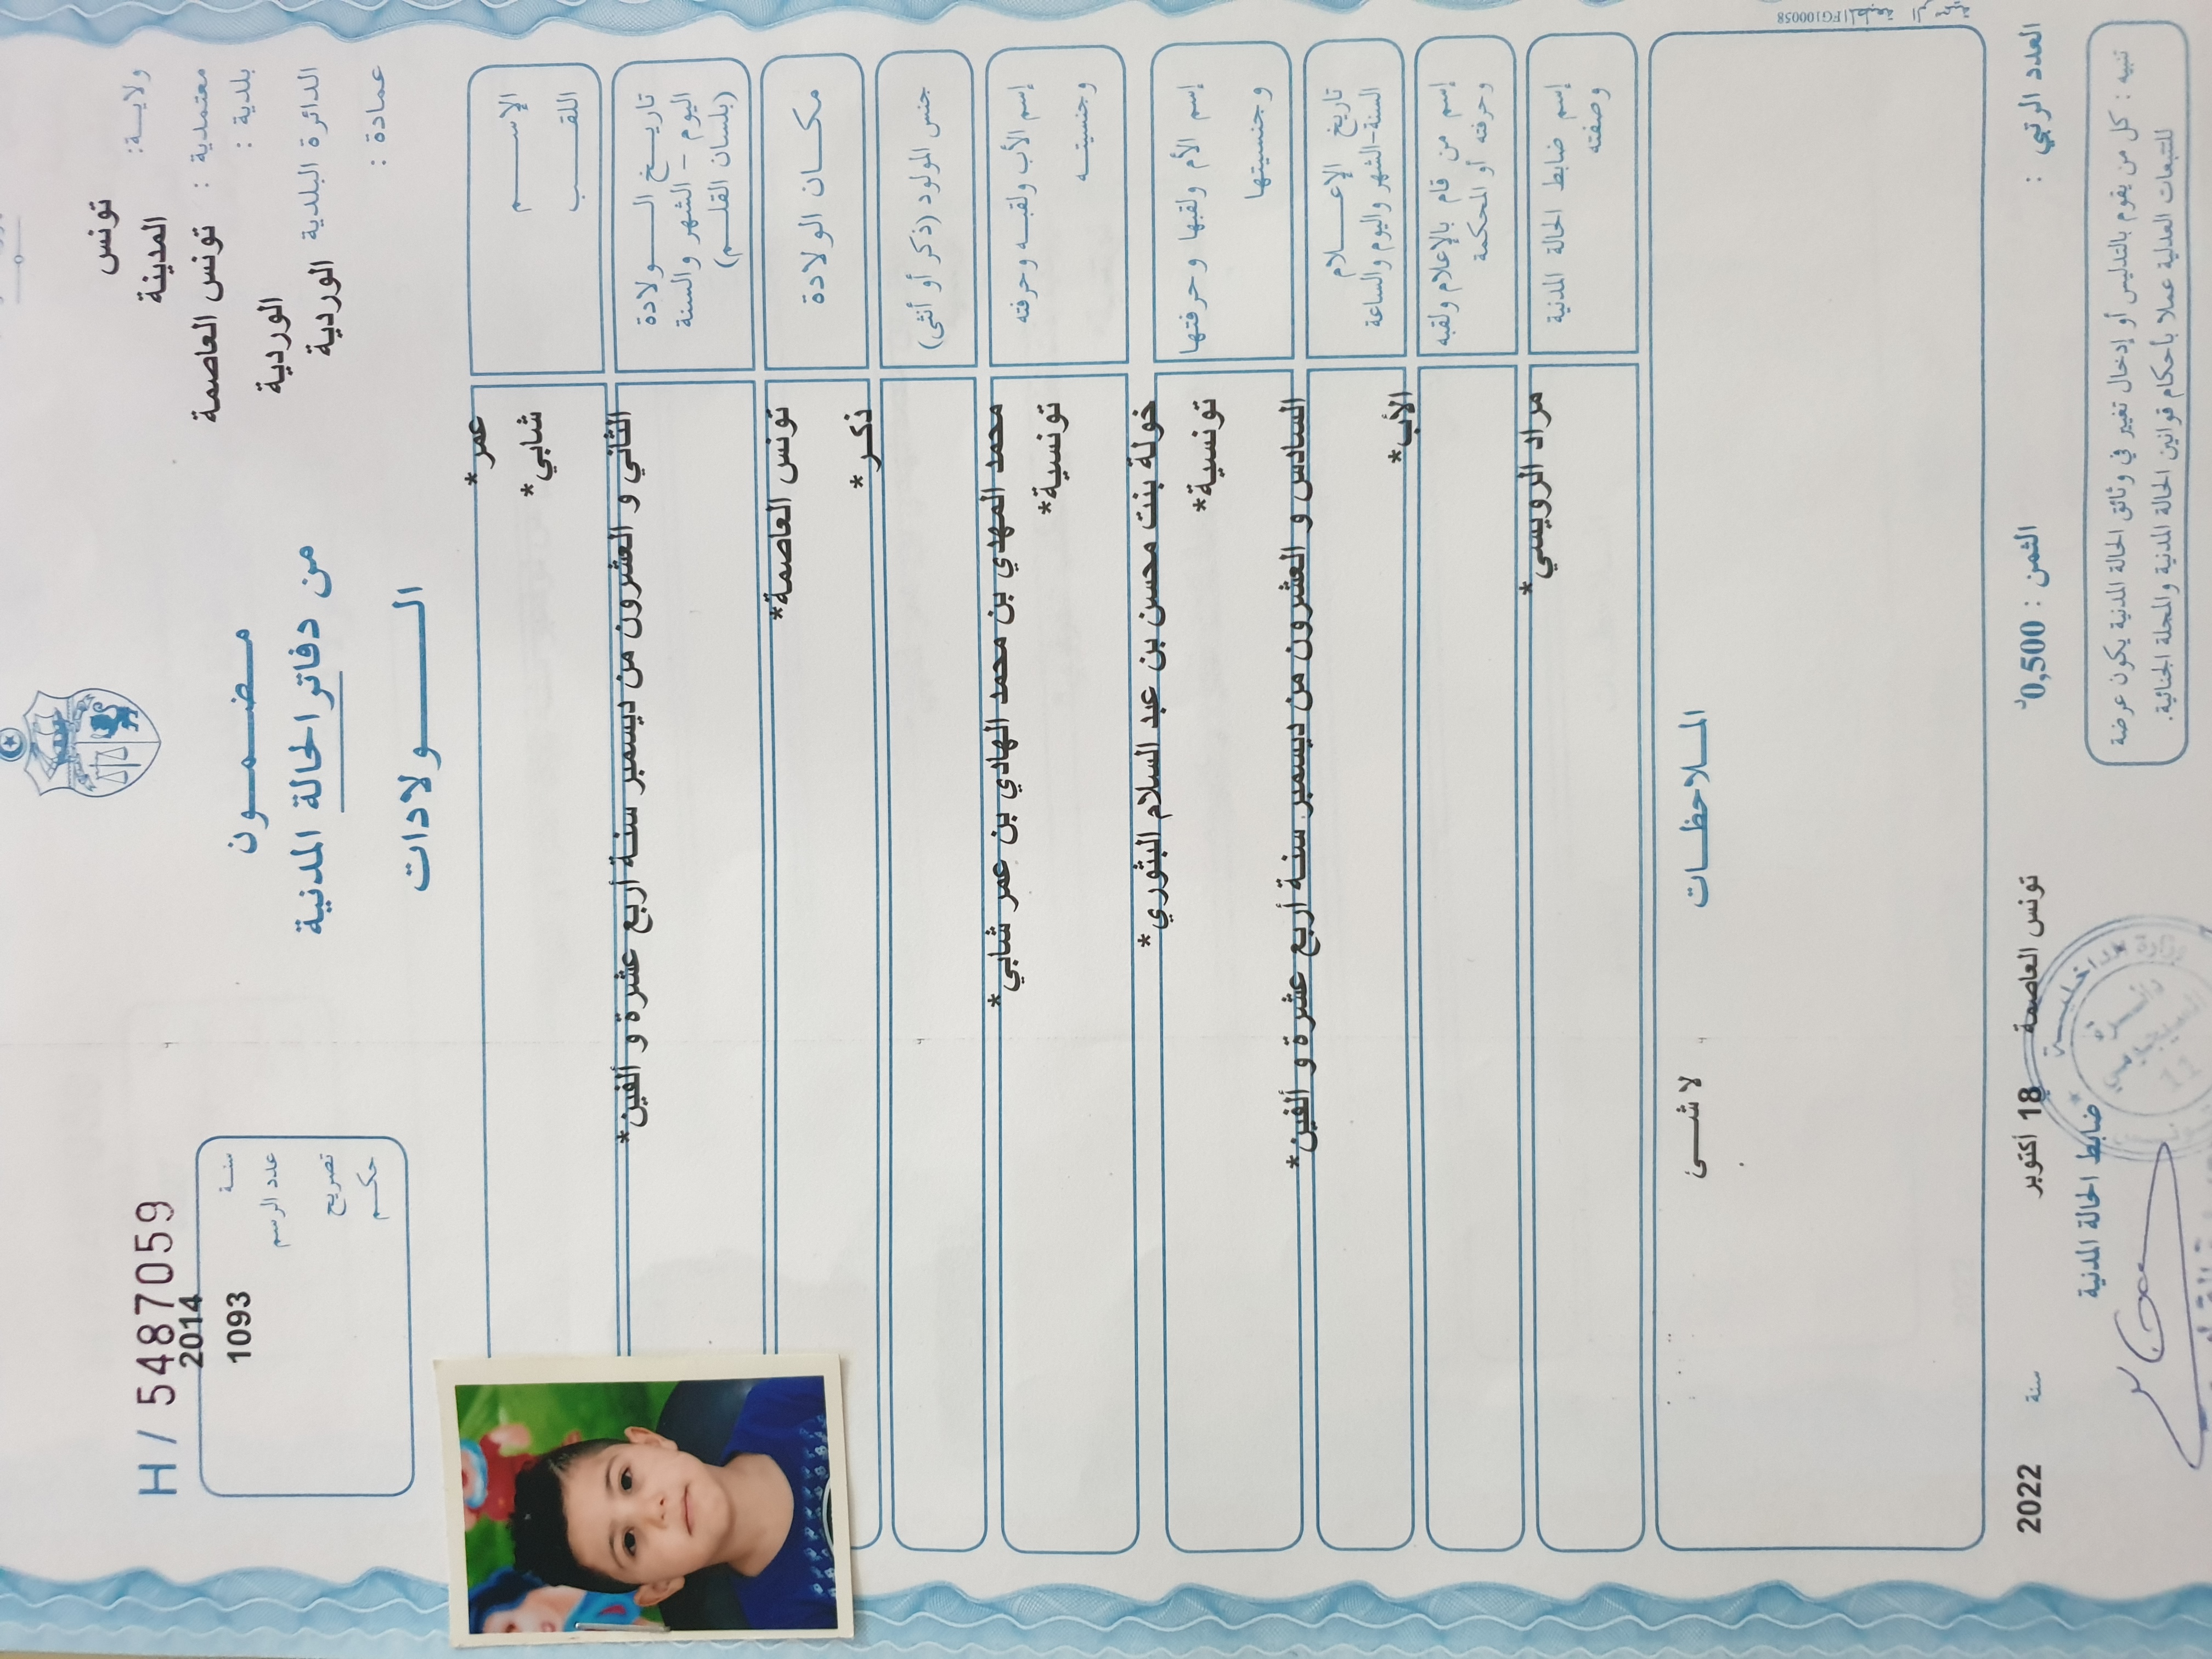 H / 5487059
ولايـــة: تونس
معتمدية : تونس العاصمة
المدينة
بلدية : الوردية
الدائرة البلدية الوردية
عمادة :
مـــضـــمـــون
من دفاتر الحالة المدنية
الـــــــولادات
سنـة 2014
عدد الرسم 1093
تصريح
حكـم
الإســـــم عمر*
اللقـــــب شابي*
تاريـــخ الـــــولادة
اليوم - الشهر والسنة
(بلسان القلـــم)
الثاني و العشرون من ديسمبر سنة أربع عشرة و ألفين*
مكـــان الولادة تونس العاصمة*
جنس المولود (ذكر أو أنثى) ذكر*
إسم الأب ولقبـــه وحرفته محمد المهدي بن محمد الهادي بن عمر شابي*
وجنسيتـــه تونسية*
إسم الأم ولقبها وحرفتها خولة بنت محسن بن عبد السلام البثوري*
وجنسيتها تونسية*
تاريخ الإعـــــلام
السنة-الشهر واليوم والساعة
السادس و العشرون من ديسمبر سنة أربع عشرة و ألفين*
إسم من قام بالإعلام ولقبه الأب*
وحرفته أو المحكمة
إسم ضابط الحالة المدنية مراد الرويسي*
وصفته
المــلاحظــات
لا شـــئ
العدد الرتبي :
الثمن : 0,500د
تونس العاصمة في 18 أكتوبر سنة 2022
ضابط الحالة المدنية
وزارة الداخليـــة
دائـــرة
11
تنبيه : كل من يقوم بالتدليس أو إدخال تغيير في وثائق الحالة المدنية يكون عرضة
للتتبعات العدلية عملا بأحكام قوانين الحالة المدنية والمجلة الجنائية.
FG100058